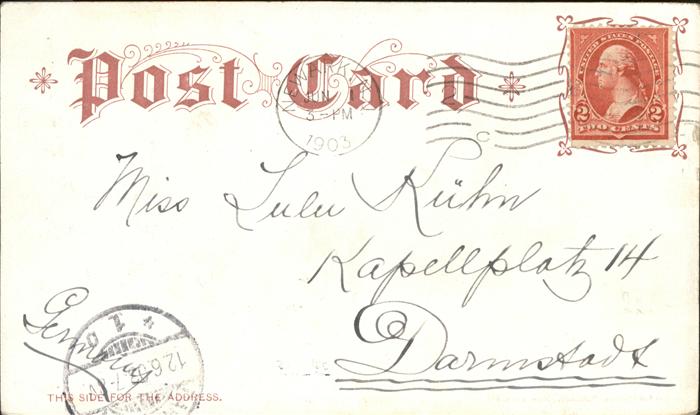 Post Card
JUN
3-PM
1903
UNITED STATES POSTAGE
2 2
TWO CENTS
Miss Lulu Kühn
Kapellplatz 14
Darmstadt
Germany
THIS SIDE FOR THE ADDRESS.